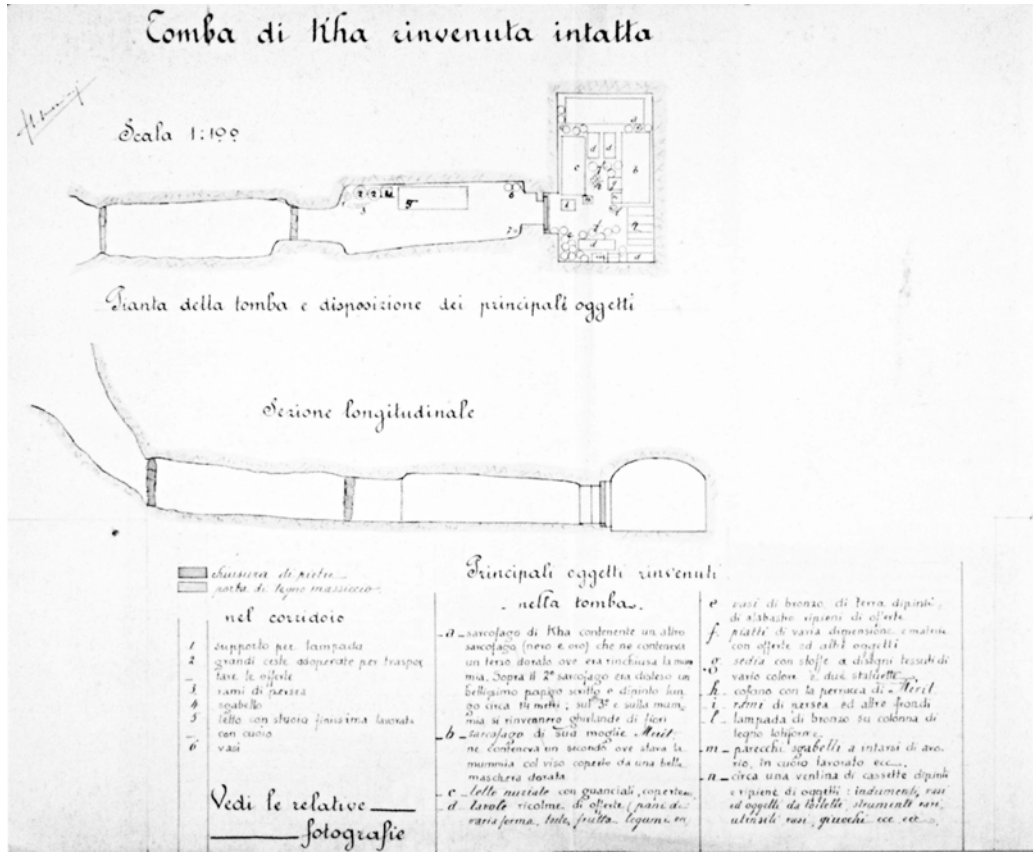 Tomba di Kha rinvenuta intatta
Scala 1:100
Pianta della tomba e disposizione dei principali oggetti
Sezione longitudinale
chiusura di pietre
porta di legno massiccio
nel corridoio
1 supporto per lampada
2 grandi ceste adoperate per traspor
tare le offerte
3 rami di persea
4 sgabello
5 letto con stuoia finissima lavorata
con cuoio
6 vasi
Vedi le relative
fotografie
Principali oggetti rinvenuti
nella tomba.
a sarcofago di Kha contenente un altro
sarcofago (nero e oro) che ne conteneva
un terzo dorato ove era rinchiusa la mum
mia. Sopra il 2º sarcofago era disteso un
bellissimo papiro scritto e dipinto lun
go circa 14 metri; sul 3º e sulla mum
mia si rinvennero ghirlande di fiori
b sarcofago di sua moglie Merit
ne conteneva un secondo ove stava la
mummia col viso coperto da una bella
maschera dorata
c letto nuziale con guanciali, coperte
d tavole ricolme di offerte (pani di
varia forma, frutta, legumi, ec.
e vasi di bronzo, di terra dipinti,
di alabastro ripieni di offerte
f piatti di varia dimensione e materia
con offerte ed altri oggetti
g sedia con stoffe a disegni tessuti di
vario colore e due statuette
h cofano con la parrucca di Merit
i rami di persea ed altre frondi
l lampada di bronzo su colonna di
legno lotiforme
m parecchi sgabelli a intarsi di avo
rio, in cuoio lavorato ecc
n circa una ventina di cassette dipinte
e ripiene di oggetti: indumenti, vasi
ed oggetti da toilette, strumenti vari,
utensili vari, giuochi ecc. ecc.